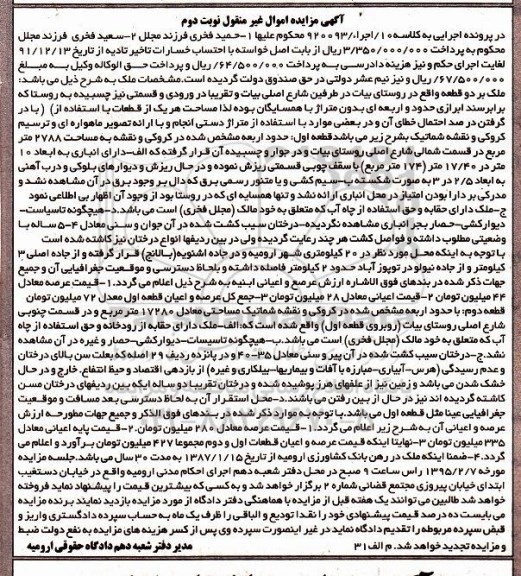 آگهی مزایده اموال غیر منقول نوبت دوم
در پرونده اجرایی به کلاسه ۱۰/اجراء/۹۲۰۰۹۳ محکوم علیها ۱-حمید فخری فرزند مجلل ۲-سعید فخری فرزند مجلل
محکوم به پرداخت ۳/۳۵۰/۰۰۰/۰۰۰ ریال از بابت اصل خواسته با احتساب خسارات تاخیر تادیه از تاریخ ۹۱/۱۲/۱۳
لغایت اجرای حکم و نیز هزینه دادرسی به پرداخت ۶۴/۵۰۰/۰۰۰ ریال و پرداخت حق الوکاله وکیل به مبلغ
۶۷/۵۰۰/۰۰۰ ریال و نیز نیم عشر دولتی در حق صندوق دولت گردیده است.مشخصات ملک به شرح ذیل می باشد:
ملک بر دو قطعه واقع در روستای بیات در طرفین شارع اصلی بیات و تقریبا در ورودی و قسمتی نیز چسبیده به روستا که
برابر سند ابرازی حدود و اربعه ای بدون متراژ با همسایگان بوده لذا مساحت هر یک از قطعات با استفاده از) (با در
گرفتن در صد احتمال خطای آن و در بعضی موارد با استفاده از متراژ دستی انجام و با ارائه تصویر ماهواره ای و ترسیم
کروکی و نقشه شماتیک بشرح زیر می باشد قطعه اول: حدود اربعه مشخص شده در کروکی و نقشه به مساحت ۲۷۸۸ متر
مربع در قسمت شمالی شارع اصلی روستای بیات و در جوار و چسبیده آن قرار گرفته که الف-دارای انباری به ابعاد ۱۰
متر در ۱۷/۴۰ متر (۱۷۴ متر مربع) با سقف چوبی قسمتی ریزش نموده و در حال ریزش و دیوارهای بلوکی و درب آهنی
به ابعاد ۲/۵ در ۳ به صورت شکسته ب-سیم کشی و یا منتور رسمی برق که دال بر وجود برق در آن مشاهده نشد و
مدرکی بر دارا بودن امتیاز در محل انباری ارائه نشد و تنها همسایه ای که در روستا بود از وجود آن اظهار بی اطلاعی نمود
ج-ملک دارای حقابه و حق استفاده از چاه آب که متعلق به خود مالک (مجلل فخری) است می باشد.د-هیچگونه تاسیسات-
دیوارکشی-حصار بجز انباری مشاهده نگردیده-درختان سیب کشت شده در آن جوان و سنی معادل ۴-۵ ساله با
وضعیتی مطلوب داشته و فواصل کشت هر چند رعایت گردیده ولی در بین ردیفها انواع درختان نیز کاشته شده است
با توجه به اینکه محل مورد نظر در ۲۰ کیلومتری شهر ارومیه و در جاده اشنویه(بالانج) قرار گرفته و از جاده اصلی ۳
کیلومتر و از جاده نیولو در توپوز آباد حدود ۲ کیلومتر فاصله داشته و بلحاظ دسترسی و موقعیت جغرافیایی آن و جمیع
جهات ذکر شده در بندهای فوق الاشاره ارزش عرصع و اعیانی ابنیه به شرح ذیل اعلام می گردد.۱-قیمت عرصه معادل
۴۴ میلیون تومان ۲-قیمت اعیانی معادل ۲۸ میلیون تومان ۳-جمع کل عرصه و اعیان قطعه اول معدل ۷۲ میلیون تومان
قطعه دوم: با حدود اربعه مشخص شده در کروکی و نقشه شماتیک مساحتی معادل ۱۷۲۸۰ متر مربع و در قسمت جنوبی
شارع اصلی روستای بیات (روبروی قطعه اول) واقع شده است که: الف-ملک دارای حقابه از رودخانه و حق استفاده از چاه
آب که متعلق به خود مالک (مجلل فخری) است می باشد.ب-هیچگونه تاسیسات-دیوارکشی-حصار و غیره در آن مشاهده
نشد.ج-درختان سیب کشت شده در آن پیر و سنی معادل ۳۵-۴۰ و در پانزده ردیف ۲۹ اصله که بعلت سن بالای درختان
و عدم رسیدگی (هرس-آبیاری-مبارزه با آفات و بیماریها-بیلکاری و غیره) از بازدهی اقتصاد و حیز انتفاع خارج و در حال
خشک شدن می باشد و زمین نیز از علفهای هرز پوشیده شده و درختان تقریبا دو ساله ای به بین ردیفهای درختان مسن
کاشته گردیده اند نیز در حال از بین رفتن می باشند.د-محل استقرار آن به لحاظ دسترسی بعد مسافت و موقعیت
جغرافیایی عینا مثل قطعه اول می باشد.با توجه به موارد ذکر شده در بندهای فوق الذکر و جمیع جهات مطروحه ارزش
عرصه و اعیانی آن به شرح زیر اعلام می گردد.۱-قیمت عرصه معادل ۲۸۰ میلیون تومان.۲-قیمت پایه اعیانی معادل
۳۳۵ میلیون تومان ۳-نهایتا اینکه قیمت عرصه و اعیان قطعات اول و دوم مجموعا ۴۲۷ میلیون تومان برآورد و اعلام می
گردد.۴-ضمنا اینکه ملک در رهن بانک کشاورزی ارومیه از تاریخ ۱۳۸۷/۱/۱۵ به مدت ۳۰ سال می باشد.جلسه مزایده
مورخه ۱۳۹۵/۲/۷ راس ساعت ۹ صبح در محل دفتر شعبه دهم اجرای احکام مدنی ارومیه واقع در خیابان دستغیب
ابتدای خیابان پیروزی مجتمع قضائی شماره ۲ برگزار خواهد شد و به کسی که بیشترین قیمت را پیشنهاد نماید فروخته
خواهد شد طالبین می توانند یک هفته قبل از مزایده با هماهنگی دفتر دادگاه از مورد مزایده بازدید نمایند برنده مزایده
می بایست ده درصد قیمت پیشنهادی خود را نقدا تودیع و الباقی را ظرف یک ماه به حساب سپرده دادگستری واریز و
قبض سپرده مربوطه را تقدیم دادگاه نماید در غیر اینصورت سپرده وی پس از کسر هزینه های مزایده به نفع دولت ضبط
و مزایده تجدید خواهد شد. م الف ۳۱
مدیر دفتر شعبه دهم دادگاه حقوقی ارومیه